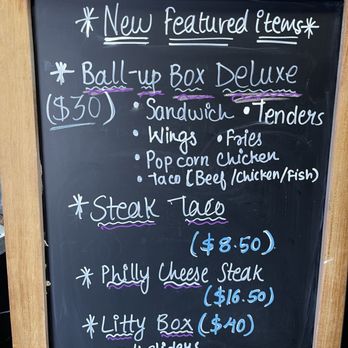 * New Featured items *
* Ball-up Box Deluxe
($30) • Sandwich • Tenders
• Wings • Fries
• Popcorn Chicken
• Taco [Beef/Chicken/Fish)
* Steak Taco
($8.50)
* Philly Cheese Steak
($16.50)
* Litty Box ($40)